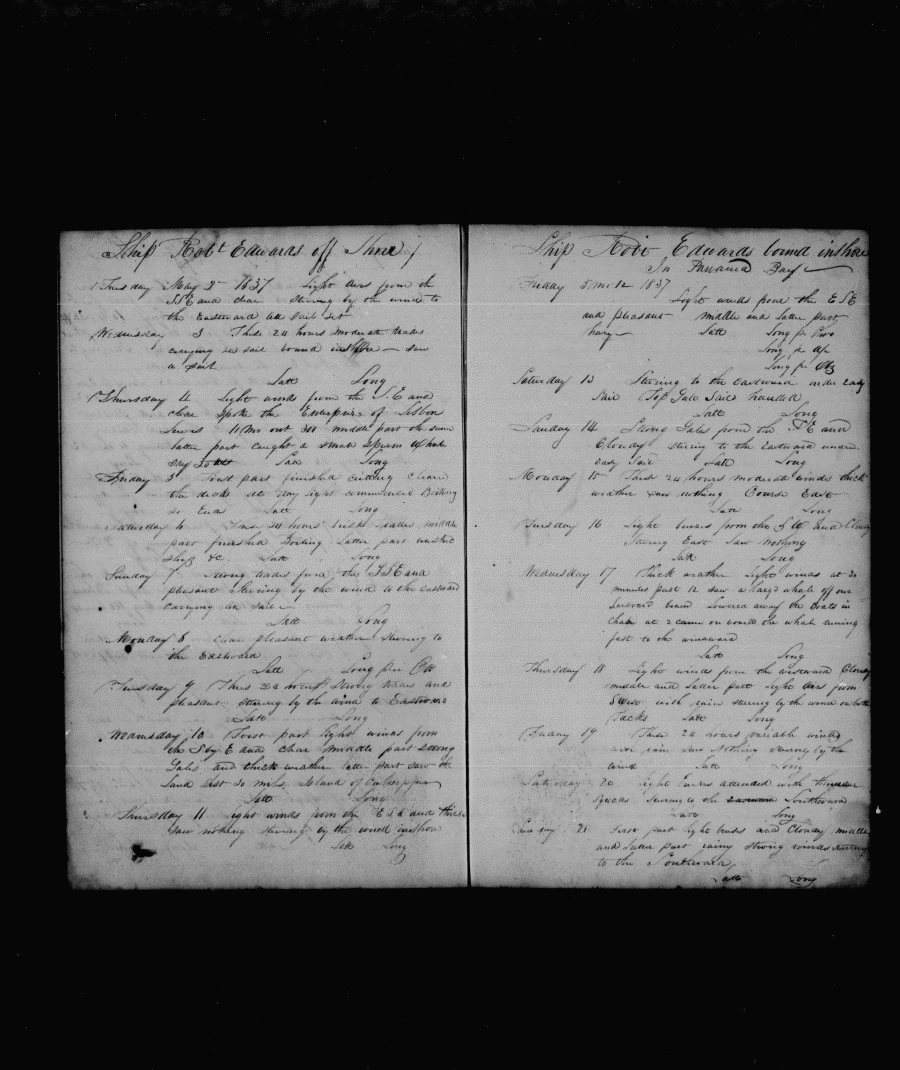 Ship Robt Edwards off Shore
Tuesday May 2d 1837 Light airs from the
SSE and clear stering by the wind to
the Eastward all sail set
Wednesday 3 These 24 hours moderate trades
carrying all sail bound inshore saw
a sail
Latt Long
Thursday 4 Light winds from the S.E and
clear spoke the Enterprise of
Lewis 11 Mo out 300 middle part the same
latter part caught a small Sperm Whale
Latt Long
Friday 5 First part finished cutting cleared
the decks at day light commenced Boiling
so Ends Latt Long
Saturday 6 These 24 hours brisk trades middle
part finished Boiling Latter part washed
ship &c Latt Long
Sunday 7 Strong trades from the SSE and
pleasant Stering by the wind to the eastward
carrying all sail
Latt Long
Monday 8 clear pleasant weather stering to
the Eastward
Latt Long per
Tuesday 9 Thes 24 hours strong trades and
pleasant stering by the wind to Eastward
Latt Long
Wednesday 10 First part light winds from
the S by E and clear middle part strong
Gales and thick weather latter part saw the
Land dist 30 mils Island of
Latt Long
Thursday 11 Light winds from the ESE and thick
saw nothing stering by the wind inshore
Latt Long
Ship Robt Edwards bound inshore
In Panama Bay
Friday 5 mo 12 1837
Light winds from the ESE
and pleasant middle and latter part
hazy Latt Long pr
Long pr
Long pr
Saturday 13 Stering to the Eastward under Easy
Sail Top Gale Sails handed
Latt Long
Sunday 14 Strong Gales from the SE and
Cloudy stering to the Eastward under
easy Sail Latt Long
Monday 15 These 24 hours moderate winds thick
weather saw nothing Course East
Latt Long
Tuesday 16 Light breezes from the S W and Cloudy
Stering East Saw Nothing
Latt Long
Wednesday 17 Thick weather Light winds at 30
minutes past 12 saw a large whale off our
Leeward beam Lowered away the Boats in
Chase at 2 came on board the whale running
fast to the windward
Latt Long
Thursday 18 Light winds from the westward Cloudy
middle and Latter part light airs from
with rain stering by the wind on both
Tacks Latt Long
Friday 19 These 24 hours variable winds
with rain Saw Nothing stering by the
wind Latt Long
Saturday 20 Light breezes attended with thunder
Squals Stering to the Eastward Southward
Latt Long
Sunday 21 First part light breezes and Cloudy middle
and Latter part rainy strong winds stering
to the Southward
Latt Long